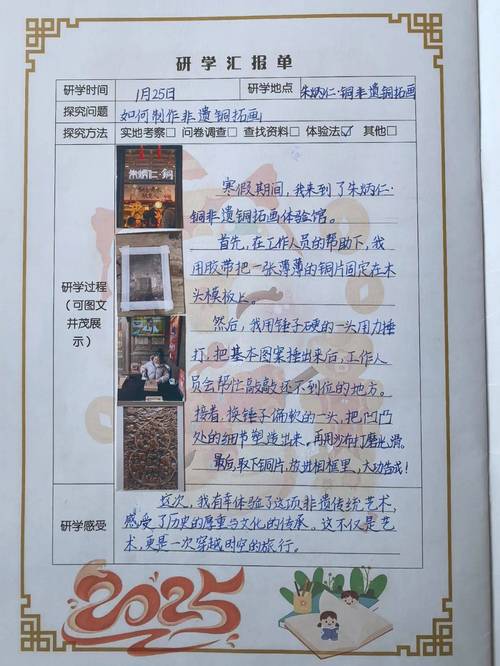 研学汇报单
研学时间 1月25日 研学地点 朱炳仁·铜非遗铜拓画
探究问题 如何制作非遗铜拓画
探究方法 实地考察□ 问卷调查□ 查找资料□ 体验法☑ 其他□
朱炳仁·铜
寒假期间,我来到了朱炳仁·
铜非遗铜拓画体验馆。
首先,在工作人员的帮助下,我
用胶带把一张薄薄的铜片固定在木
头模板上。
研学过程
(可图文
并茂展
示)
然后,我用锤子硬的一头用力捶
打,把基本图案捶出来后,工作人
员会帮忙敲敲还不到位的地方。
接着,换锤子偏软的一头,把凹凸
处的细节塑造出来。再用纱布打磨光滑。
最后,取下铜片,放进相框里,大功告成!
研学感受
这次,我有幸体验了这项非遗传统艺术,
感受了历史的厚重与文化的传承。这不仅是艺
术,更是一次穿越时空的旅行。
2025